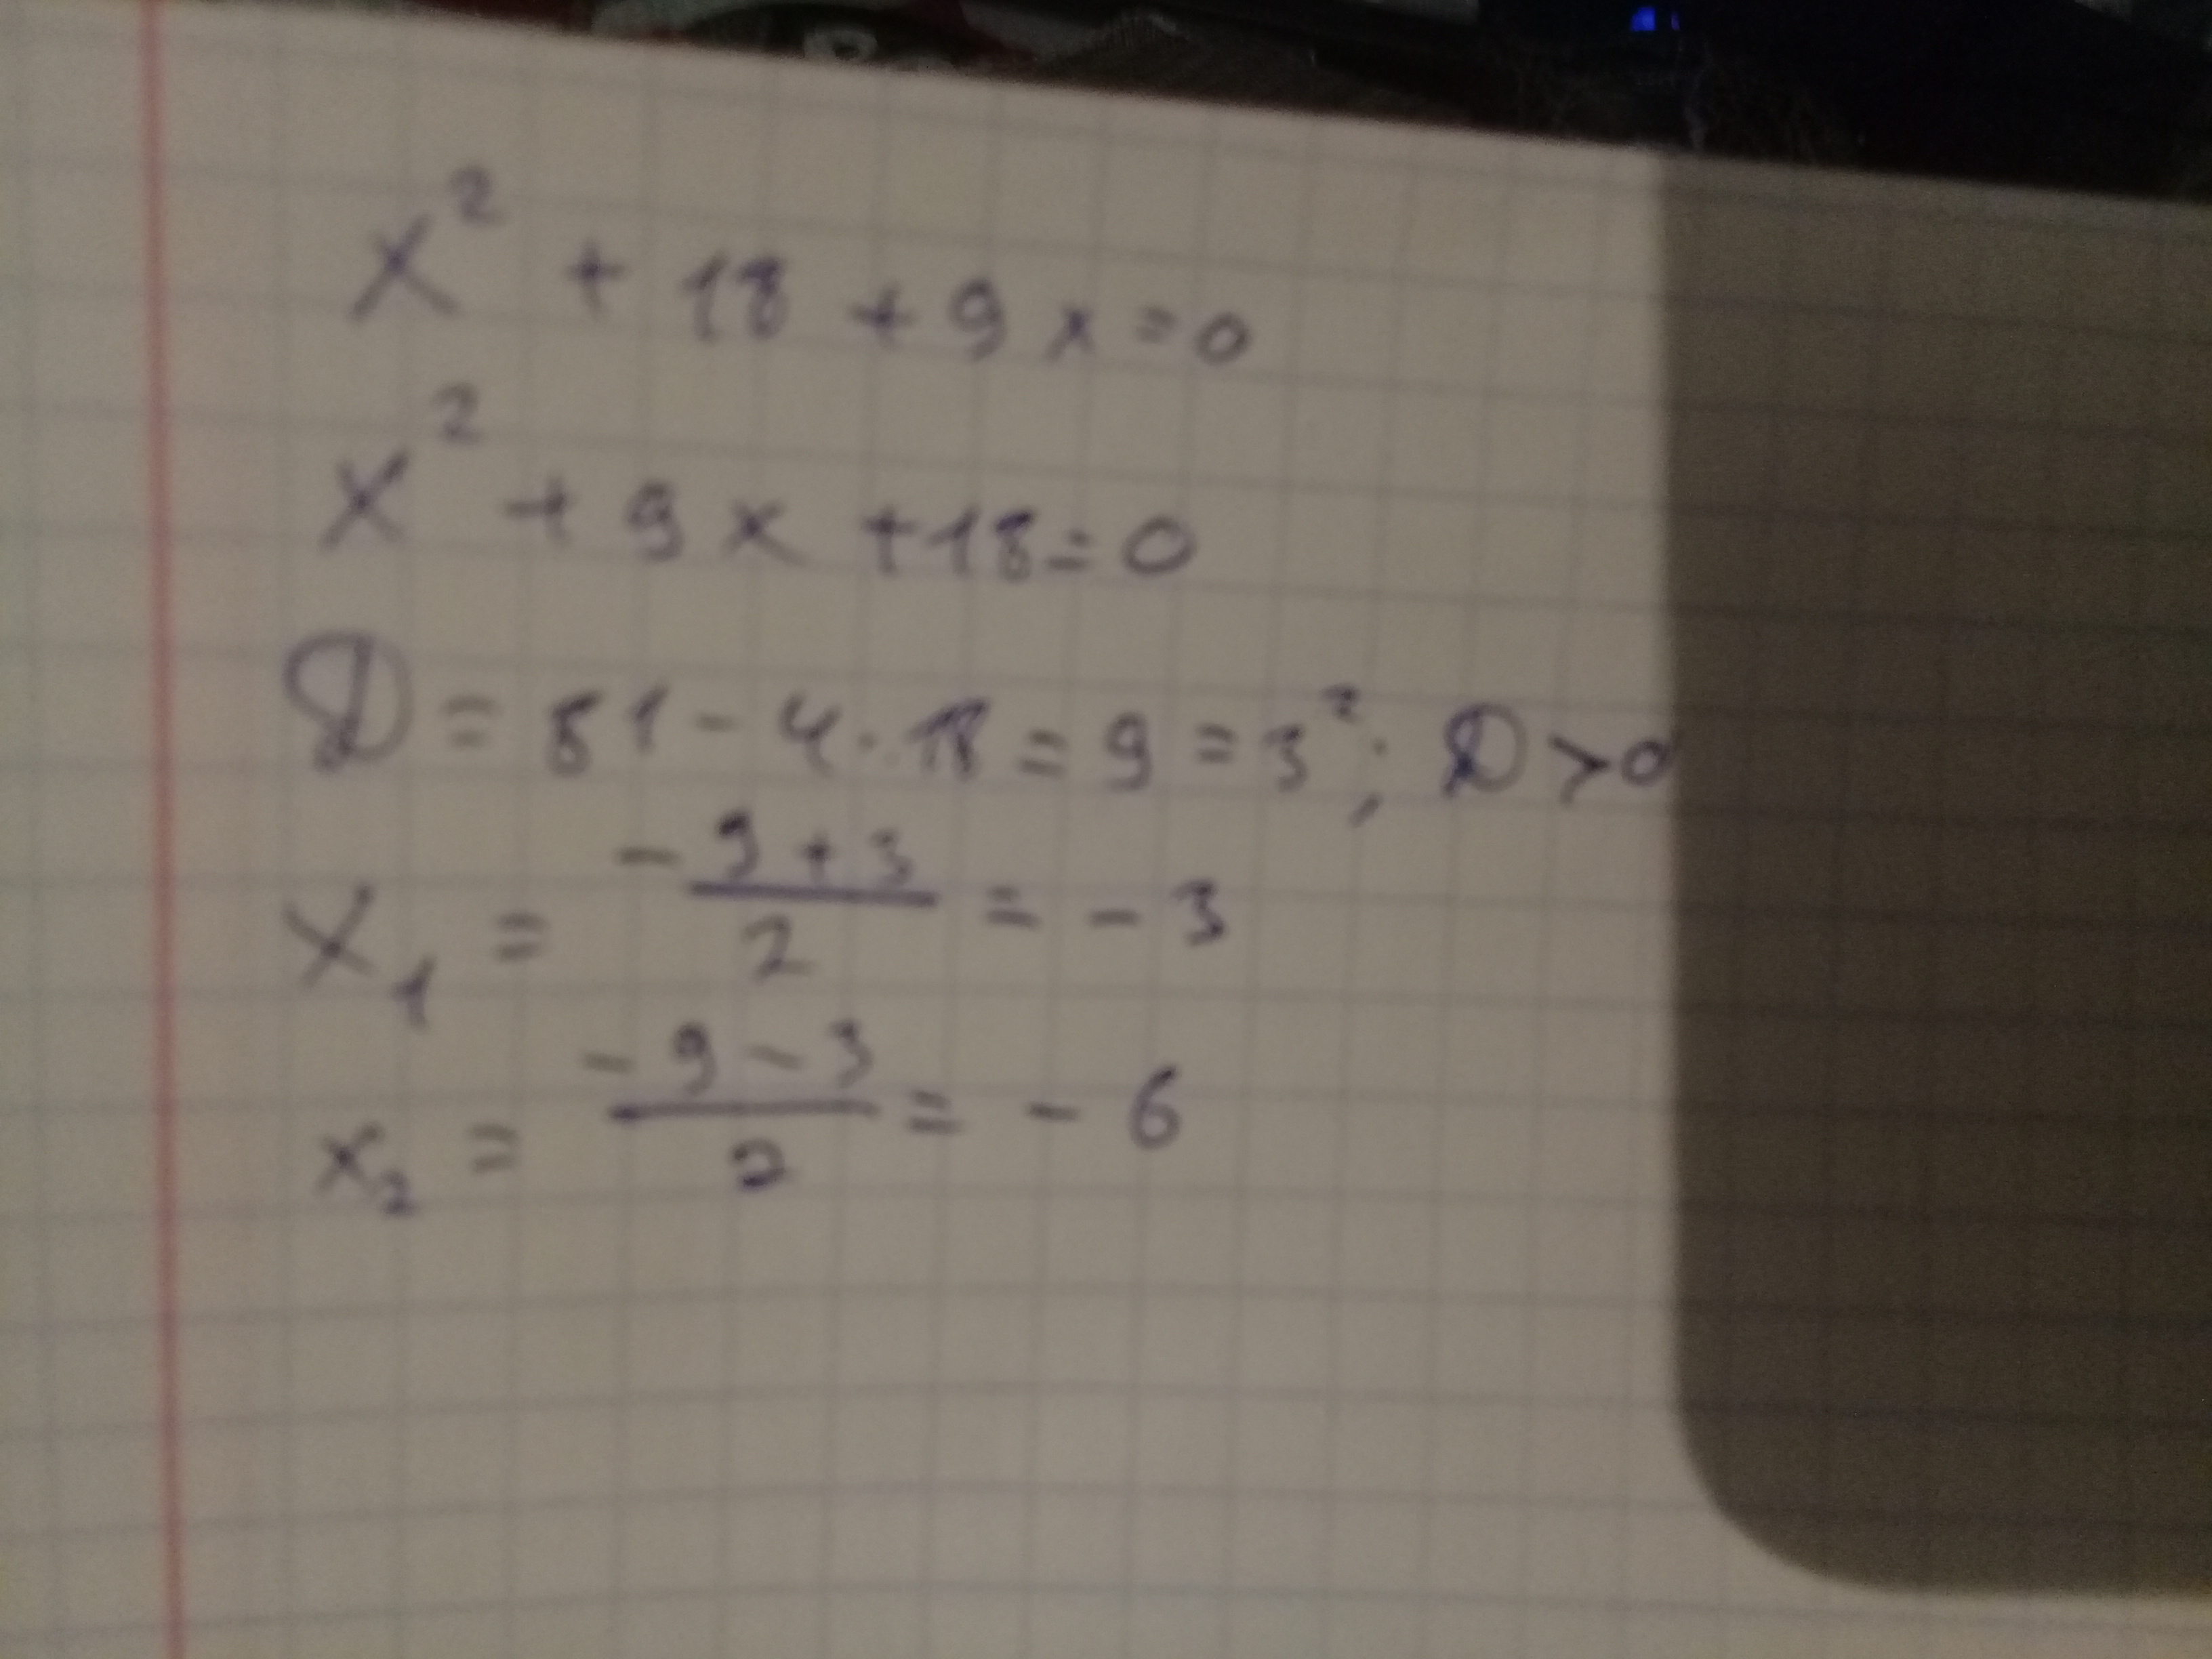 x² + 18 + 9x = 0
x² + 9x + 18 = 0
D = 81 - 4 · 18 = 9 = 3²; D > 0
x₁ = (-9 + 3)/2 = -3
x₂ = (-9 - 3)/2 = -6